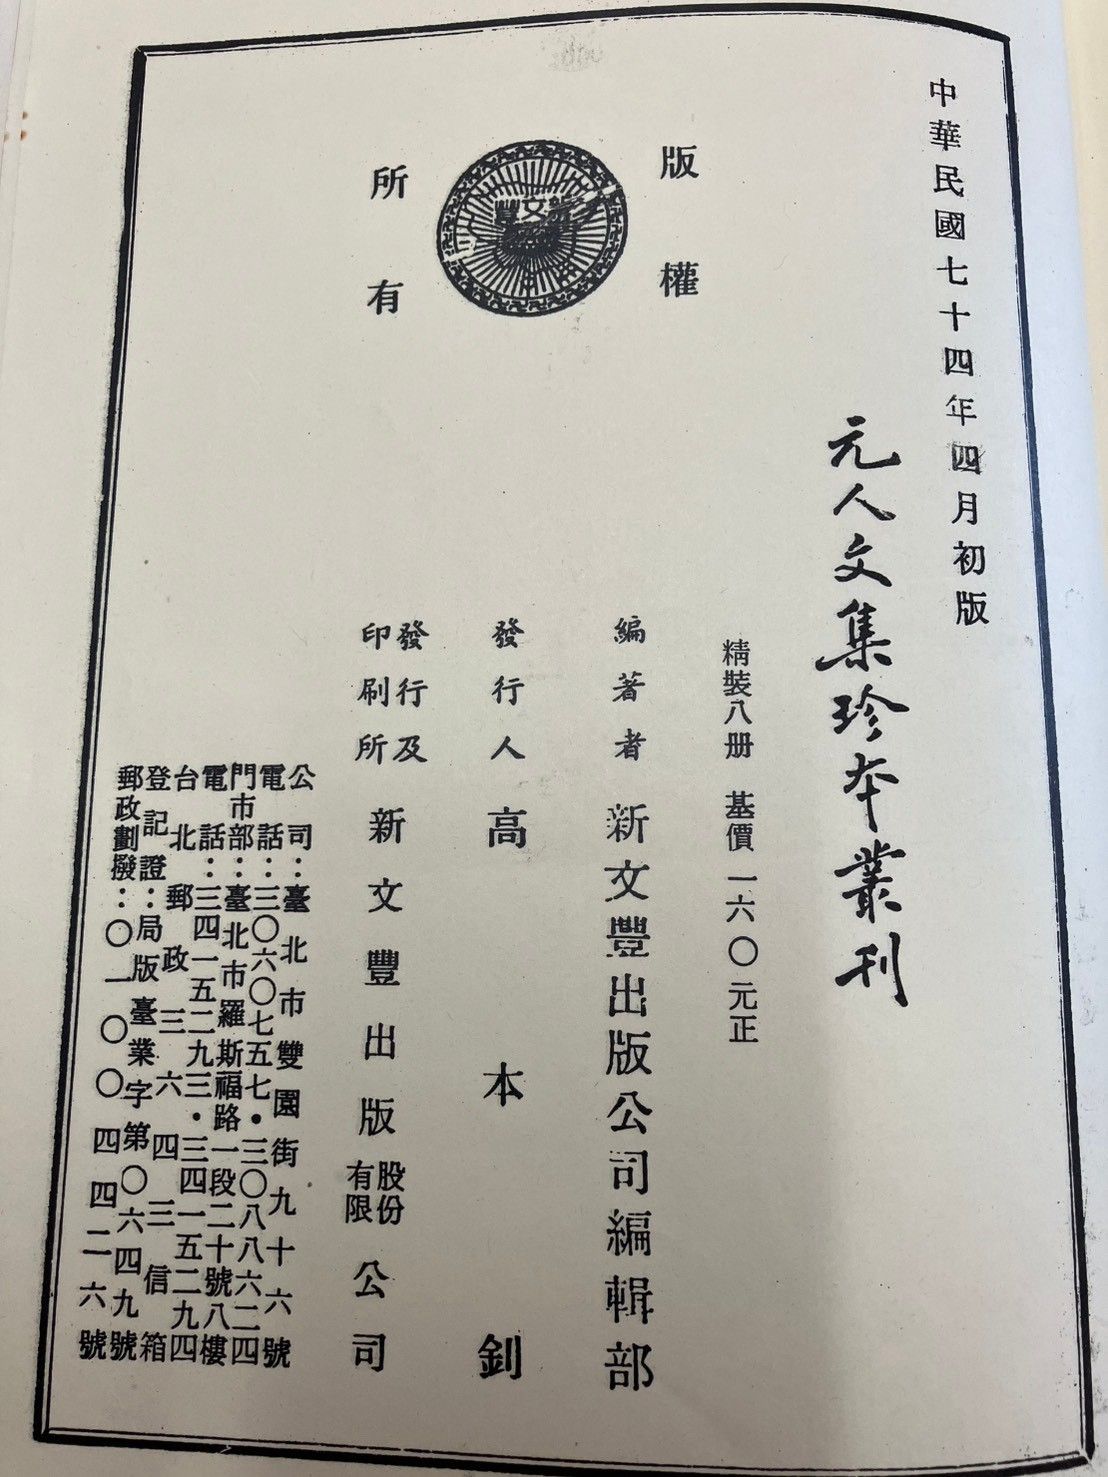 中華民國七十四年四月初版
元人文集珍本叢刊
精裝八册　基價一六〇元正
版權
所有
新文豐
編著者　新文豐出版公司編輯部
發行人　高本釗
發行及
印刷所　新文豐出版股份有限公司
公司：臺北市雙園街九十六號
電話：三〇六〇七五七・三〇八八六二四
門市部：臺北市羅斯福路一段二十號八樓
電話：三四一五二九三・三四一五二九四
台北郵政三六四三信箱
登記證：局版臺業字第〇六四九號
郵政劃撥：〇一〇〇四四二六號